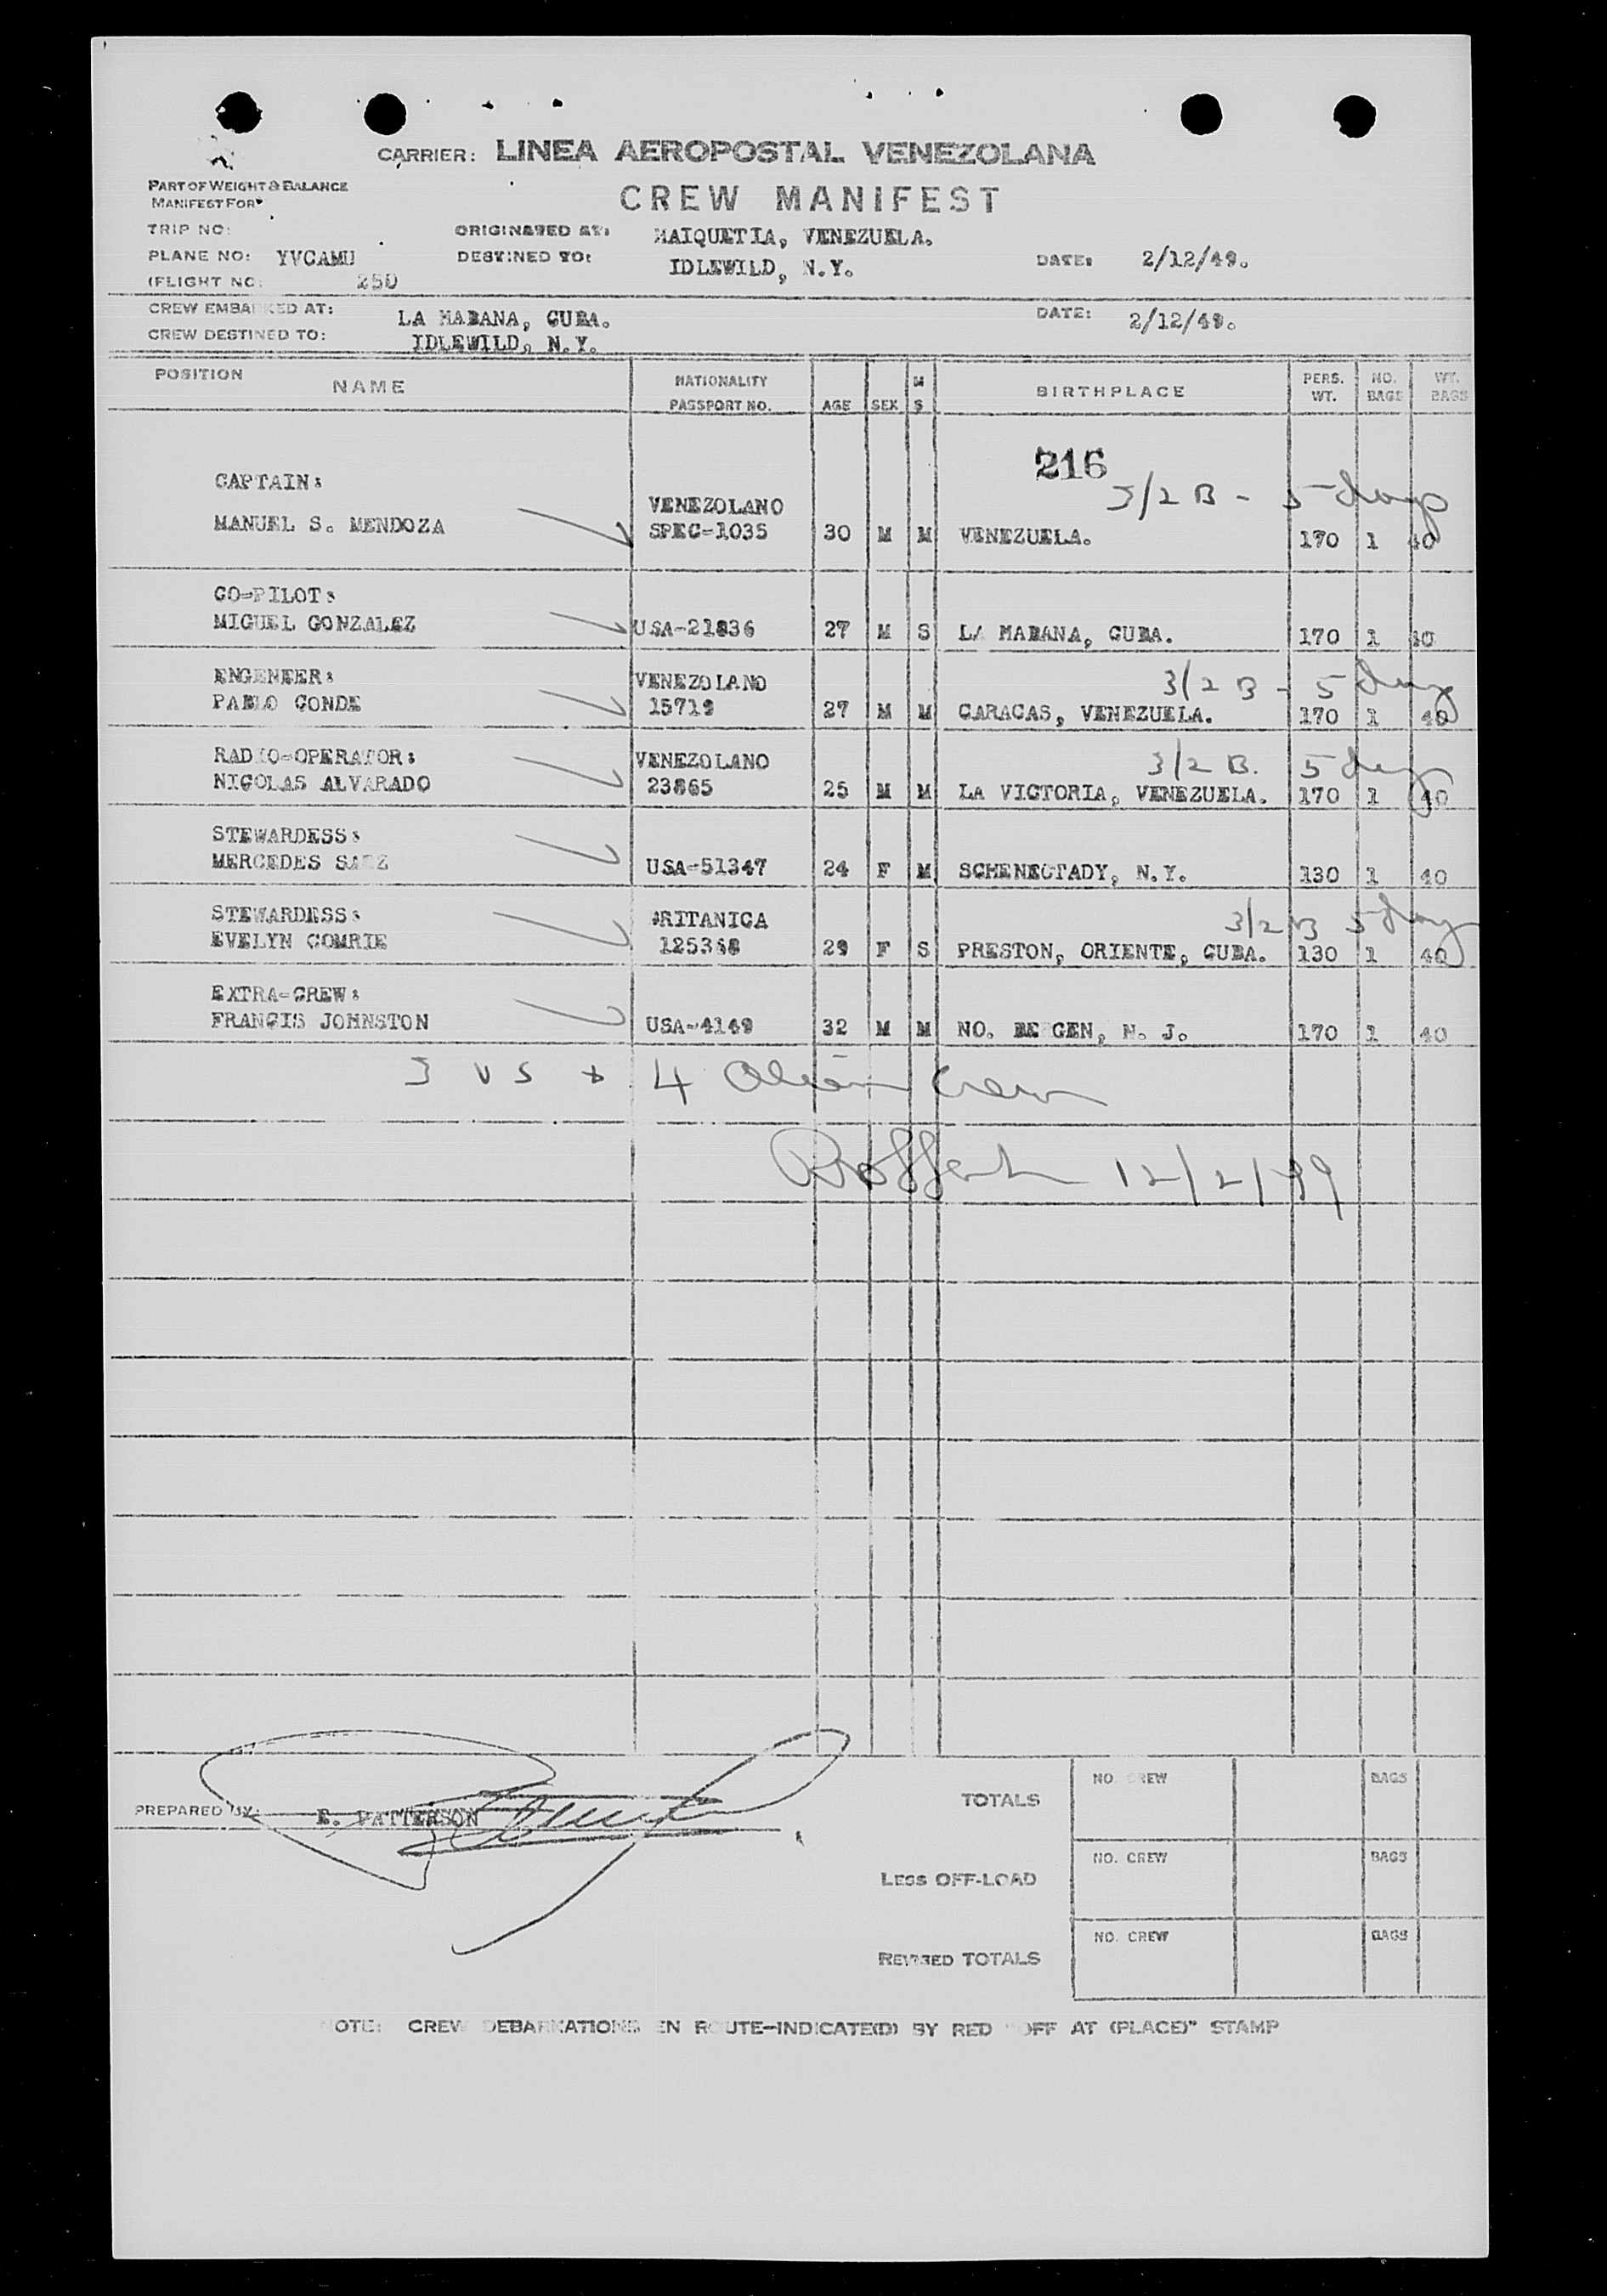 CARRIER: LINEA AEROPOSTAL VENEZOLANA
PART OF WEIGHT & BALANCE
MANIFEST FOR
CREW MANIFEST
TRIP NO:
ORIGINATED AT: MAIQUETIA, VENEZUELA.
PLANE NO: YVCAMU
DESTINED TO: IDLEWILD, N.Y.
DATE: 2/12/49.
(FLIGHT NO: 250
CREW EMBARKED AT: LA HABANA, CUBA.
DATE: 2/12/49.
CREW DESTINED TO: IDLEWILD, N.Y.
POSITION NAME NATIONALITY PASSPORT NO. AGE SEX M S BIRTHPLACE PERS. WT. NO. BAGS WT. BAGS
216
CAPTAIN: 3/2 B - 5 days
VENEZOLANO
MANUEL S. MENDOZA SPEC-1035 30 M M VENEZUELA. 170 1 40
CO-PILOT:
MIGUEL GONZALEZ USA-21836 27 M S LA HABANA, CUBA. 170 1 40
ENGENEER: VENEZOLANO 3/2 B - 5 days
PABLO CONDE 15719 27 M M CARACAS, VENEZUELA. 170 1 40
RADIO-OPERATOR: VENEZOLANO 3/2 B. 5 days
NICOLAS ALVARADO 23865 25 M M LA VICTORIA, VENEZUELA. 170 1 40
STEWARDESS:
MERCEDES USA-51347 24 F M SCHENECTADY, N.Y. 130 1 40
STEWARDESS: BRITANICA 3/2 B 5 days
EVELYN COMRIE 125348 29 F S PRESTON, ORIENTE, CUBA. 130 1 40
EXTRA-CREW:
FRANCIS JOHNSTON USA-4149 32 M M NO. BERGEN, N. J. 170 1 40
3 US + 4 Alien Crew
12/2/49
PREPARED BY: E. PATTERSON
TOTALS NO. CREW BAGS
LESS OFF-LOAD NO. CREW BAGS
REVISED TOTALS NO. CREW BAGS
NOTE: CREW DEBARKATIONS EN ROUTE-INDICATE(D) BY RED "OFF AT (PLACE)" STAMP